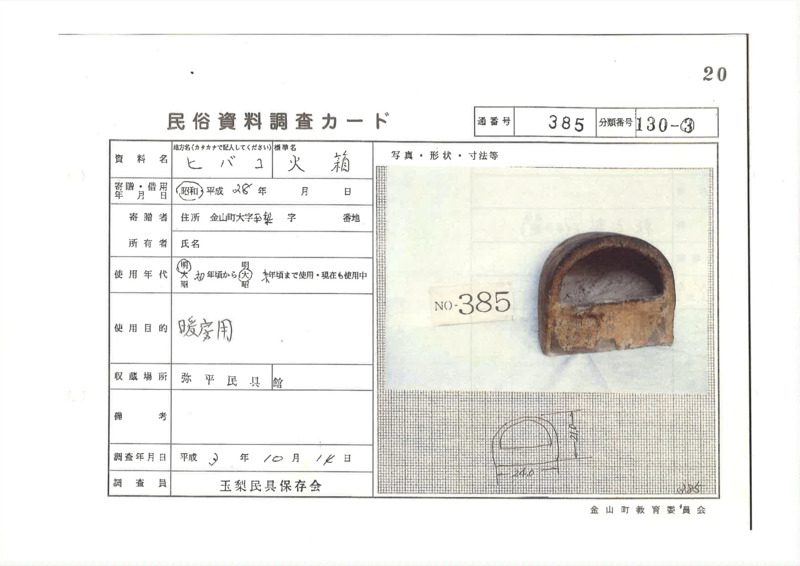 20
民俗資料調査カード
通番号 385 分類番号 130-③
資料名 地方名(カタカナで記入してください) ヒバコ 標準名 火箱
寄贈・借用年月日 昭和 平成 28年 月 日
寄贈者 住所 金山町大字玉梨 字 番地
所有者 氏名
使用年代 明 大 昭 初年頃から 明 大 昭 年頃まで使用・現在も使用中
使用目的 暖房用
収蔵場所 弥平民具館
備考
調査年月日 平成 3年 10月 14日
調査員 玉梨民具保存会
写真・形状・寸法等
NO-385
21.0
24.0
385
金山町教育委員会